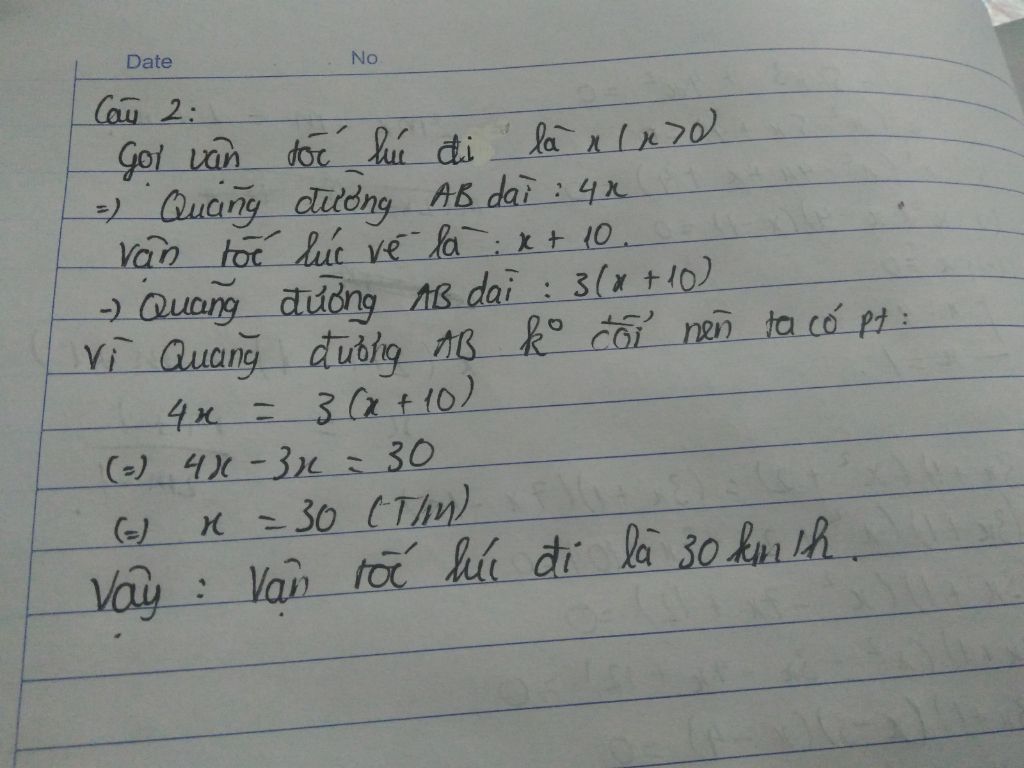 Date No
Câu 2:
Gọi vận tốc lúc đi là x (x>0)
=> Quãng đường AB dài : 4x
Vận tốc lúc về là : x + 10.
-> Quãng đường AB dài : 3(x+10)
Vì Quãng đường AB k° đổi nên ta có pt :
4x = 3(x+10)
(=) 4x - 3x = 30
(=) x = 30 (T/m)
Vậy : Vận tốc lúc đi là 30 km/h.